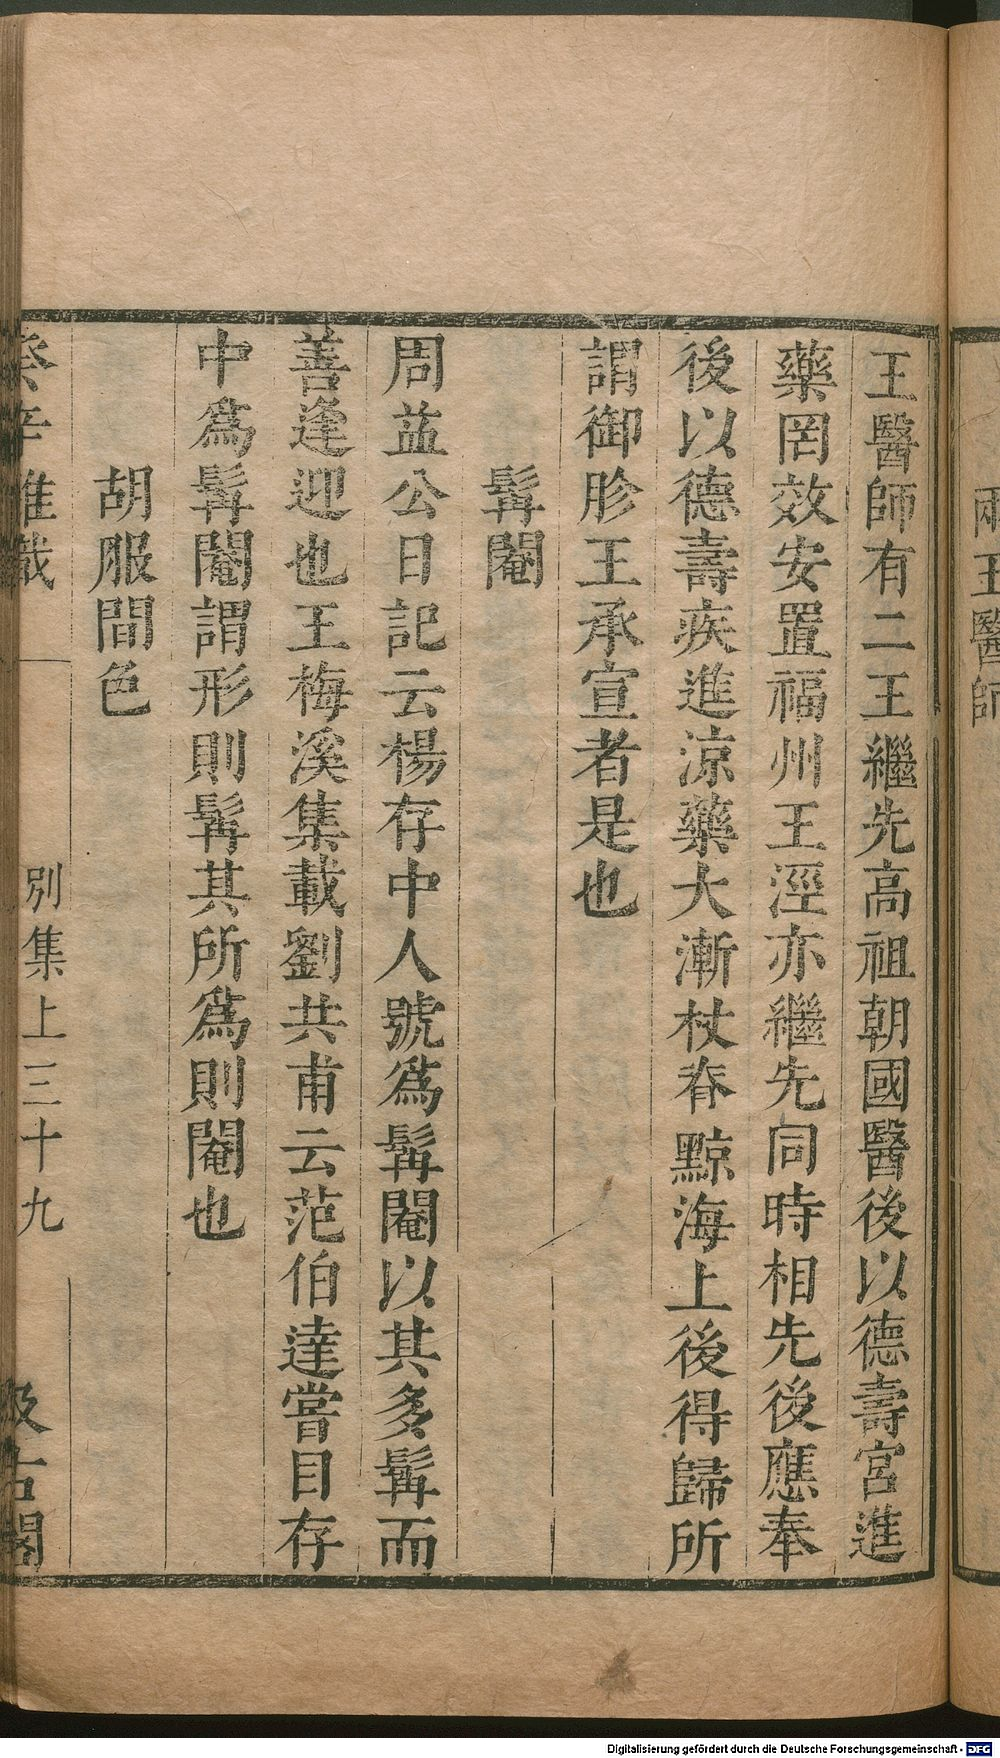 兩王醫師
王醫師有二王繼先高祖朝國醫後以德壽宮進
藥罔效安置福州王涇亦繼先同時相先後應奉
後以德壽疾進涼藥大漸杖脊黥海上後得歸所
謂御胗王承宣者是也
髯閹
周益公日記云楊存中人號爲髯閹以其多髯而
善逢迎也王梅溪集載劉共甫云范伯達嘗目存
中爲髯閹謂形則髯其所爲則閹也
胡服間色
癸辛雜識
別集上三十九
汲古閣
Digitalisierung gefördert durch die Deutsche Forschungsgemeinschaft - DFG